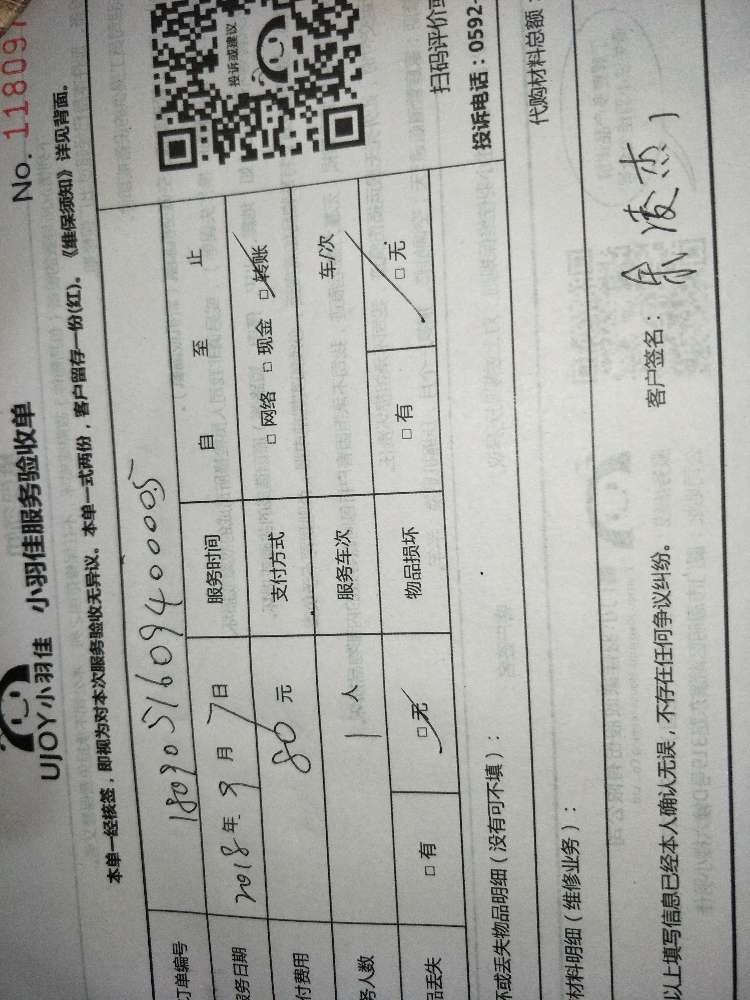 UJOY小羽佳 小羽佳服务验收单
No. 118097
本单一经核签，即视为对本次服务验收无异议。本单一式两份，客户留存一份(红)。《维保须知》详见背面。
订单编号 180905160940005
服务日期 2018年9月7日 服务时间 自 至 止
付费用 80元 支付方式 □网络 □现金 □转账
务人数 1人 服务车次 车/次
品丢失 □有 □无 物品损坏 □有 □无
投诉或建议
扫码评价或
投诉电话：0592-
坏或丢失物品明细（没有可不填）：
代购材料总额：
材料明细（维修业务）：
以上填写信息已经本人确认无误，不存在任何争议纠纷。
客户签名：余凌杰